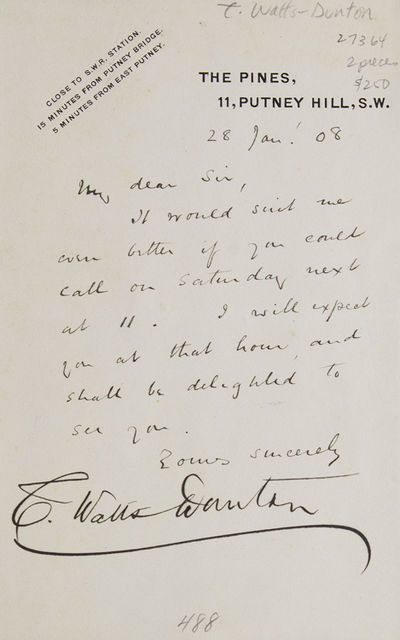 T. Watts-Dunton
27364
2 pieces
$250
CLOSE TO S.W.R. STATION.
15 MINUTES FROM PUTNEY BRIDGE.
5 MINUTES FROM EAST PUTNEY.
THE PINES,
11, PUTNEY HILL, S.W.
28 Jan! 08
My dear Sir,
It would suit me
even better if you could
call on Saturday next
at 11. I will expect
you at that hour and
shall be delighted to
see you.
Yours sincerely
T. Watts-Dunton
488